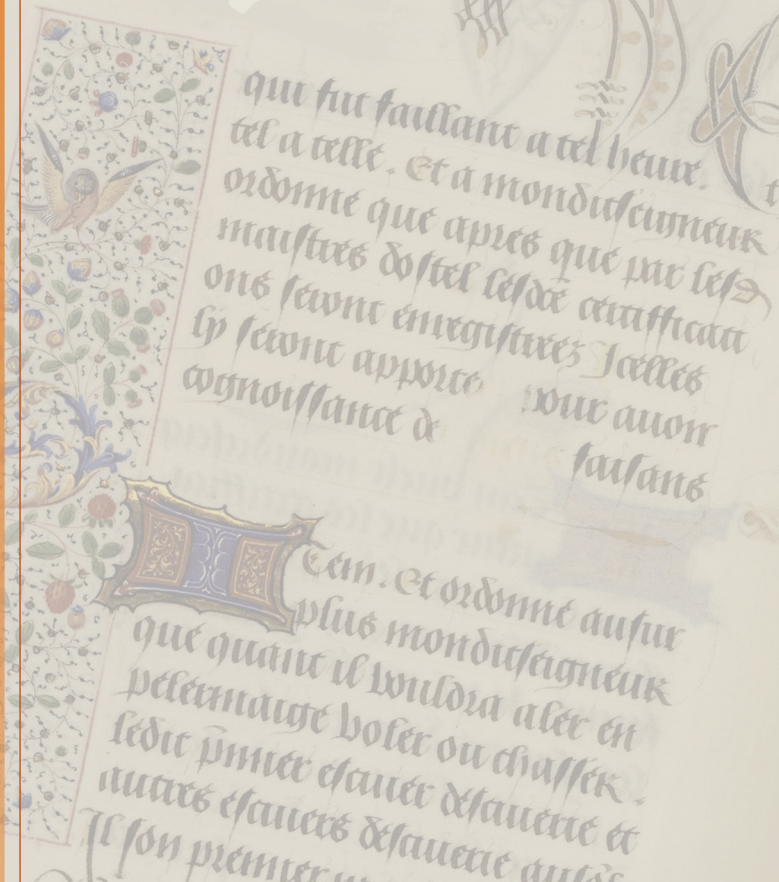 qui fut faillant a tel heure.
tel a telle. Et a mondisseigneur
ordonne que apres que par les
maistres dostel lesdites certifficati
ons seront enregistrees Icelles
ly seront apporte pour auoir
cognoissance de
faisans
Item. Et ordonne ausur
plus mondisseigneur
que quant il vouldra aler en
pelerinaige voler ou chasser.
ledit pmier escuier descuierie et
autres escuiers descuierie
Il son premier